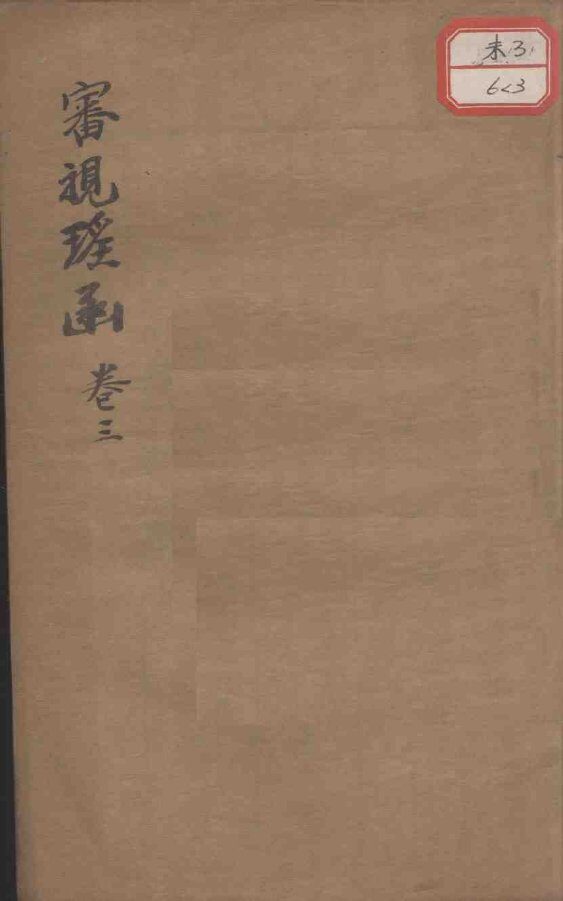 審視瑤函 卷三
未3
6<3